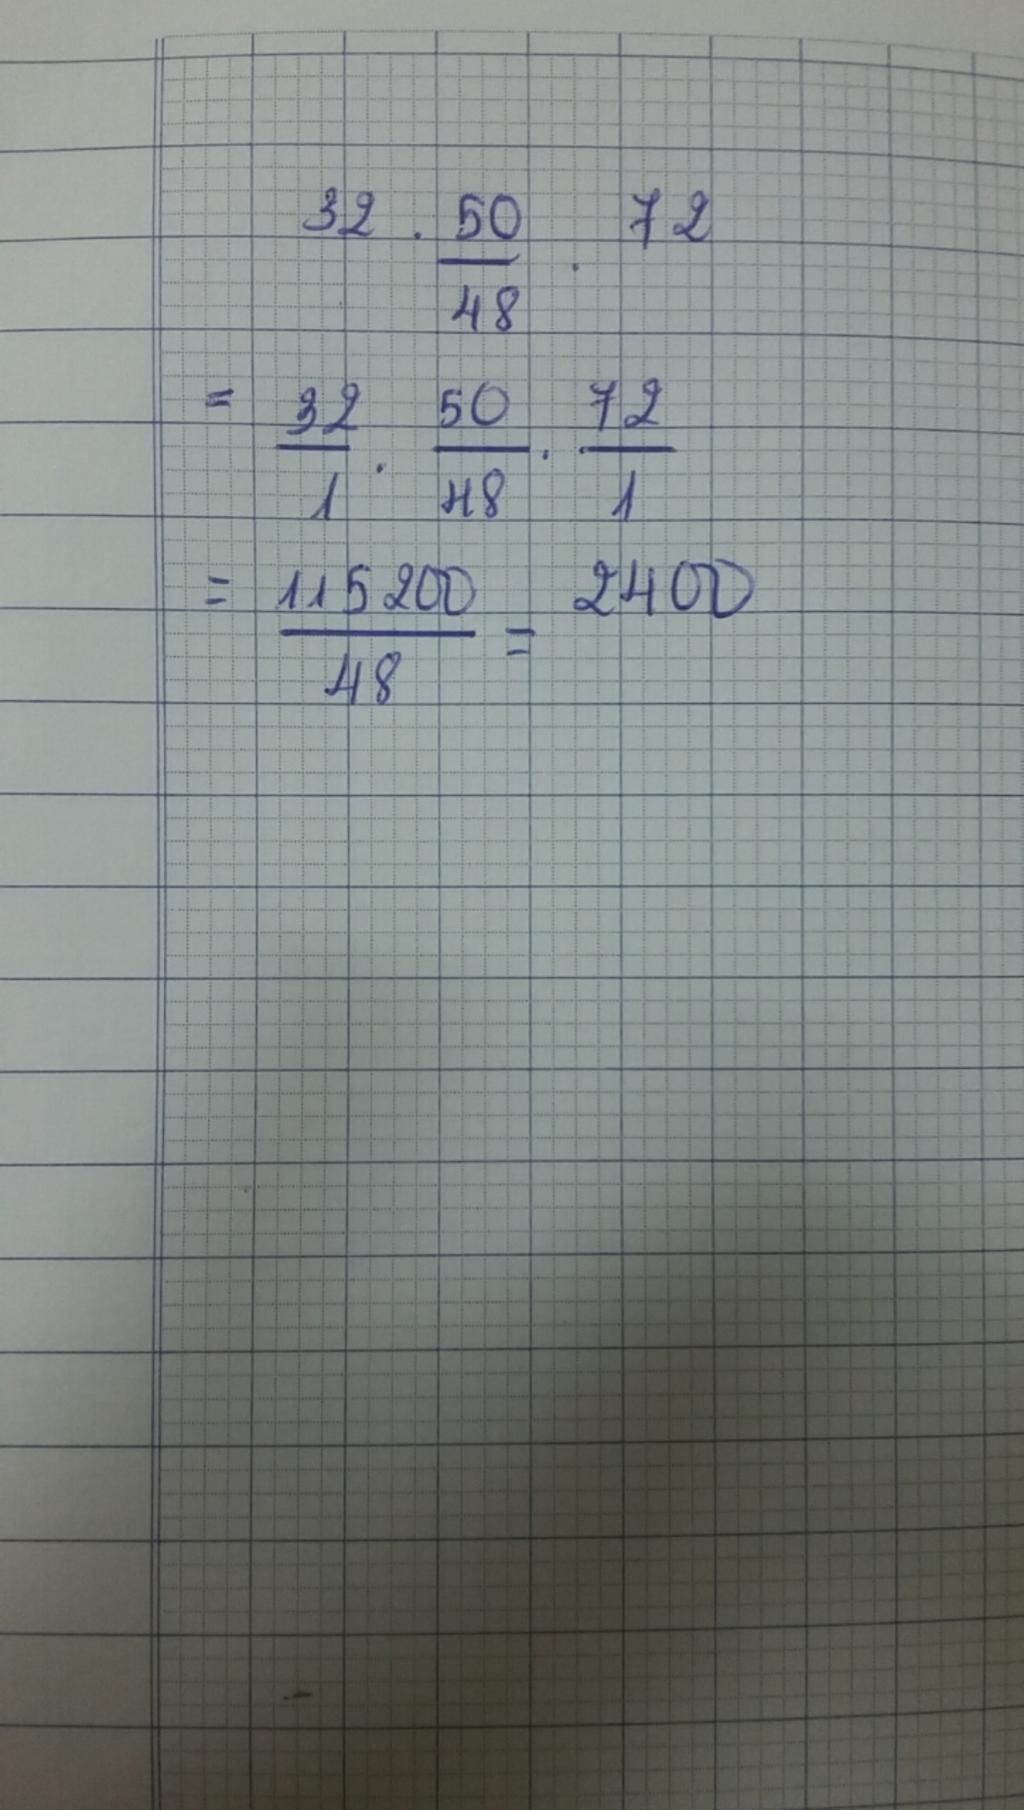 32 . 50/48 . 72
= 32/1 . 50/48 . 72/1
= 115200/48 = 2400